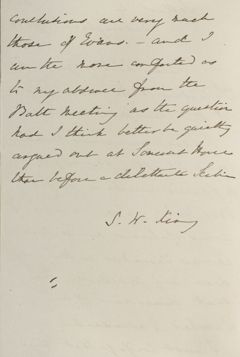 conclusions are very much
those of Evans. — and I
am the more comforted as
to my absence from the
Bath meeting as the question
had I think better be quietly
argued out at Somerset House
than before a dilettante
S. W. King